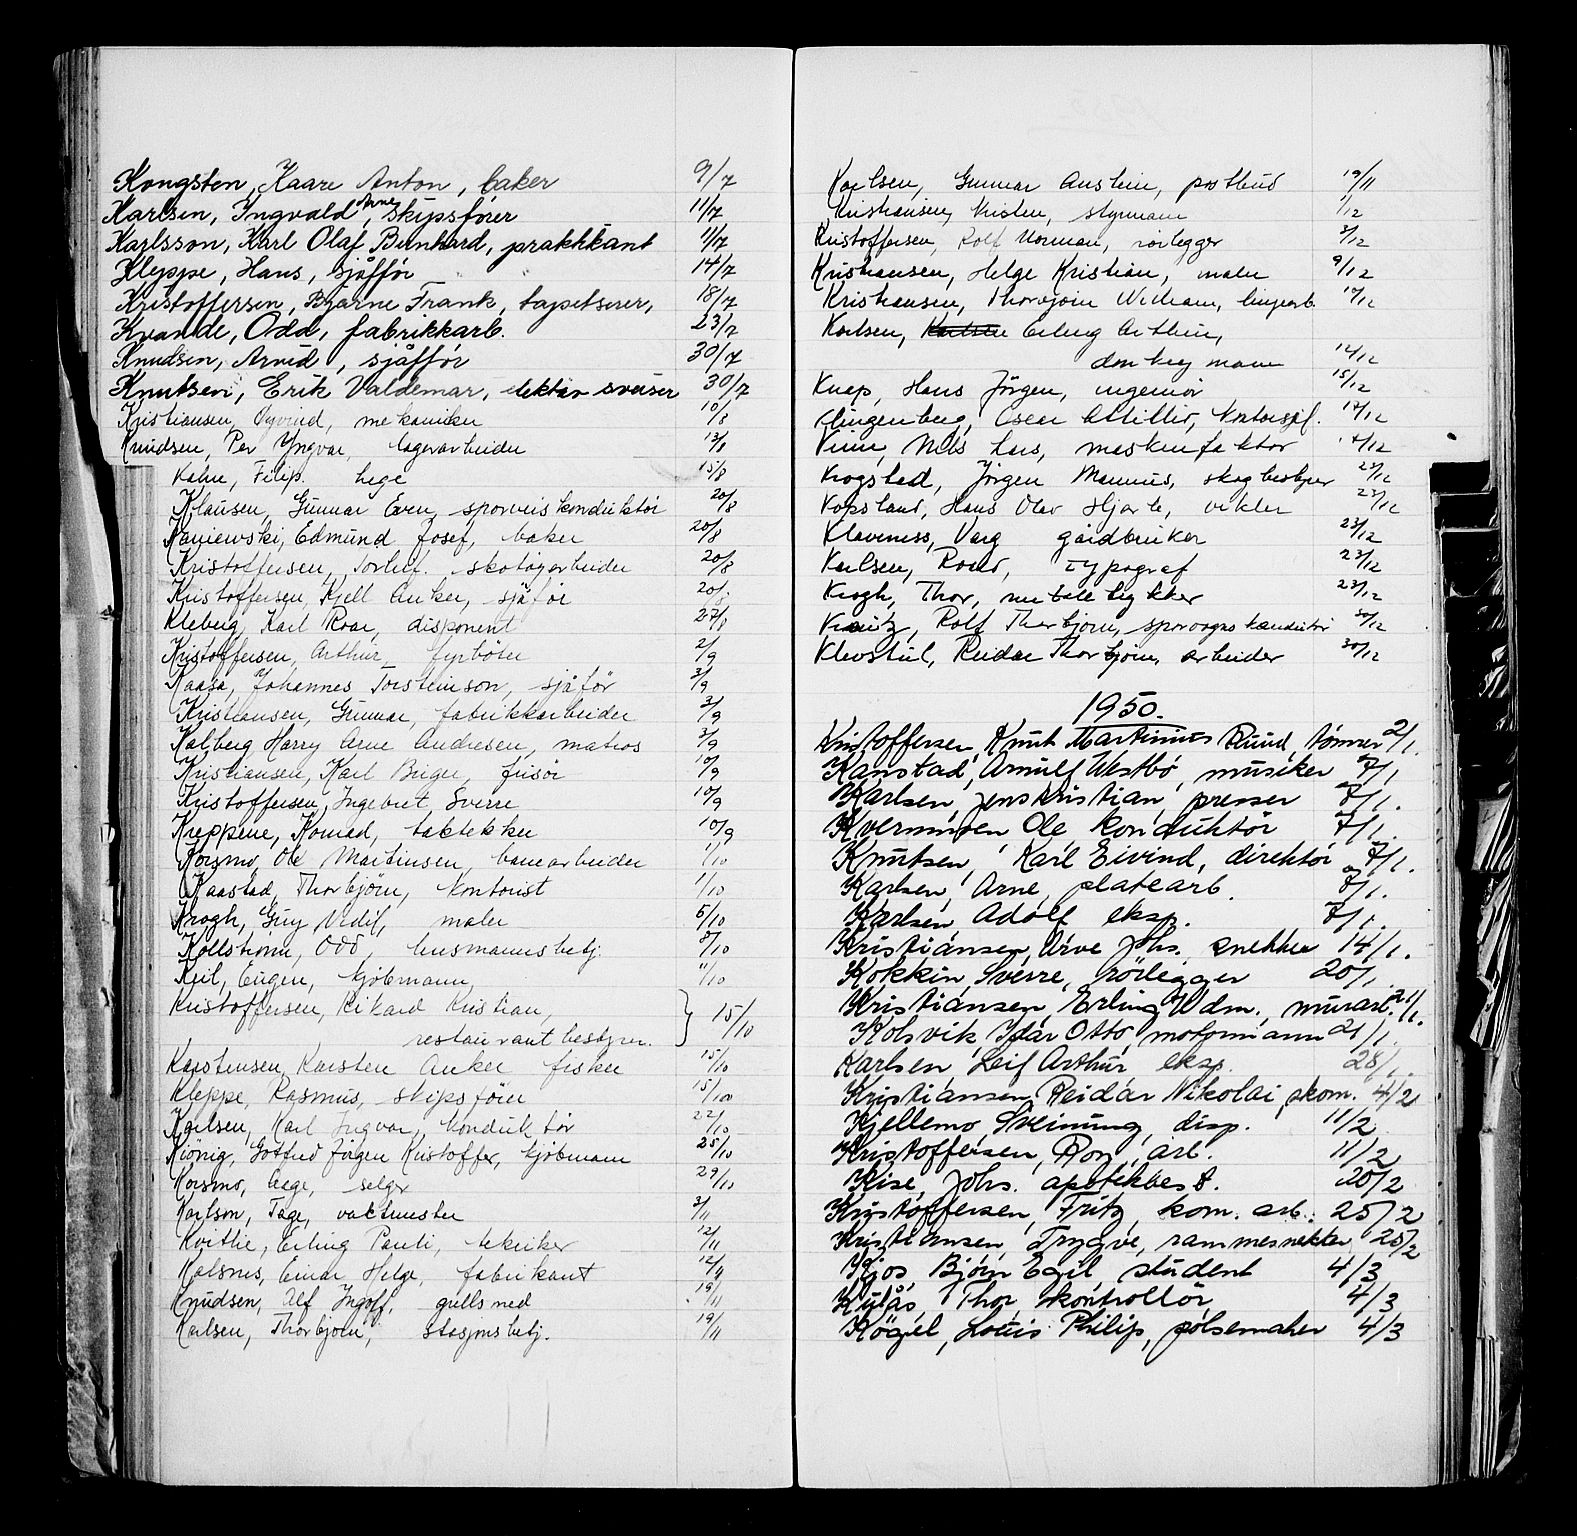 Kongsten, Kaare Anton, baker 9/7
Karlsen, Ingvald Arne, skipsfører 11/7
Karlsson, Karl Olaf Bernhard, praktikant 11/7
Kleppe, Hans, sjåffør 14/7
Kristoffersen, Bjarne Frank, tapetserer, 18/7
Kvande, Odd, fabrikkarb. 23/7
Knudsen, Arvid, sjåffør 30/7
Knutsen, Erik Valdemar, elektr. sveiser 30/7
Kristiansen, Øyvind, mekaniker 10/8
Knudsen, Per Yngvar, lagerarbeider 13/8
Kahn, Filip. lege 15/8
Klausen, Gunnar Even, sporveiskonduktør 20/8
Edmund Josef, baker 20/8
Kristoffersen, Torleif. skotøyarbeider 20/8
Kristoffersen, Kjell Anker, sjåfør 20/8
Kleberg, Karl Roar, disponent 27/8
Kristoffersen, Arthur, fyrbøter 2/9
Kaasa, Johannes Torsteinson, sjåfør 3/9
Kristiansen, Gunnar, fabrikkarbeider 3/9
Kalberg Harry Arne Andresen, matros 3/9
Kristiansen, Karl Birger, frisør 10/9
Kristoffersen, Ingebret Sverre 10/9
Kreppene, Konrad, taktekker 10/9
Korsmo, Ole Martinsen, banearbeider 1/10
Kaastad, Thorbjørn, kontorist 1/10
Krogh, Guy maler 5/10
Kollstrøm, Odd, husmannsbetj. 8/10
Keil, Eugen, kjøbmann, 11/10
Kristoffersen, Rikard Kristian,
restaurantbestyrer. } 15/10
Karstensen, Karsten Anker fisker 15/10
Kleppe, Rasmus, skipsfører 15/10
Karlsen, Karl Ingvar, konduktør 22/10
Kiönig, Gotfred Jörgen Kristoffer, kjøbmann 25/10
Korsmo, Aage, selger 29/10
Karlson, Tage, vaktmester 3/11
Kvitlie, Erling Pauli, tekniker 12/11
Kalsnes, Einar Helge, fabrikant 12/11
Knudsen, Alf Ingolf, gullsmed 19/11
Karlsen, Thorbjørn, stasjonsbetj. 19/11
Karlsen, Gunnar Austein, postbud 19/11
Kristiansen, Kristen, styrmann 1/12
Kristoffersen, Rolf Norman, rørlegger 3/12
Kristiansen, Helge Kristian, maler 9/12
Kristiansen, Thorbjørn William, linjearb. 10/12
Karlsen, Karlsen Erling Arthur,
donkeymann 14/12
Knap, Hans Jörgen, ingeniør 15/12
Klingenberg, Oscar kontorsjef. 17/12
Nils Lars, maskinfaktor 17/12
Krogstad, Jörgen Mannus, skogbestyrer 23/12
Kopsland, Hans Olav Hjarte, vikler 23/12
Klaveness, Varg gårdbruker 23/12
Karlsen, Roald, typograf 23/12
Krogh, Thor, møbeltrykker 23/12
Kreitz, Rolf Thorbjørn, sporvognskonduktør 30/12
Klevstul, Reidar Thorbjørn, arbeider 30/12
1950.
Kristoffersen, Knut Martinius Ruud, tømmer 2/1.
Kanstad, Arnulf Westbø, musiker 7/1
Karlsen, Jens Kristian, presser 7/1.
Kvernmoen Ole konduktör 7/1.
Knutsen, Karl Eivind, direktør 7/1.
Karlsen, Arne, platearb. 7/1.
Karlsen Adolf eksp. 7/1.
Kristiansen, Arve Johs. snekker 14/1.
Kokkin, Sverre, rörlegger 20/1
Kristiansen, Erling Wdm., murarb. 21/1.
Kolsvik, Idar Otto, motormann 21/1.
Karlsen, Leif Arthur eksp. 28/1.
Kristiansen, Reidar Nikolai, skom. 4/2
Kjellemo, Sveinung, disp. 11/2
Kristoffersen, Roy, arb. 11/2
Kise, Johs. apotekbest. 20/2
Kristoffersen, Fritz, kom. arb. 25/2
Kristiansen, Trygve, rammesnekker 25/2
Kjos, Bjørn Egil, student 4/3
Kulås, Thor, kontrollör, 4/3
Kögel, Louis Philip, pölsemaker 4/3